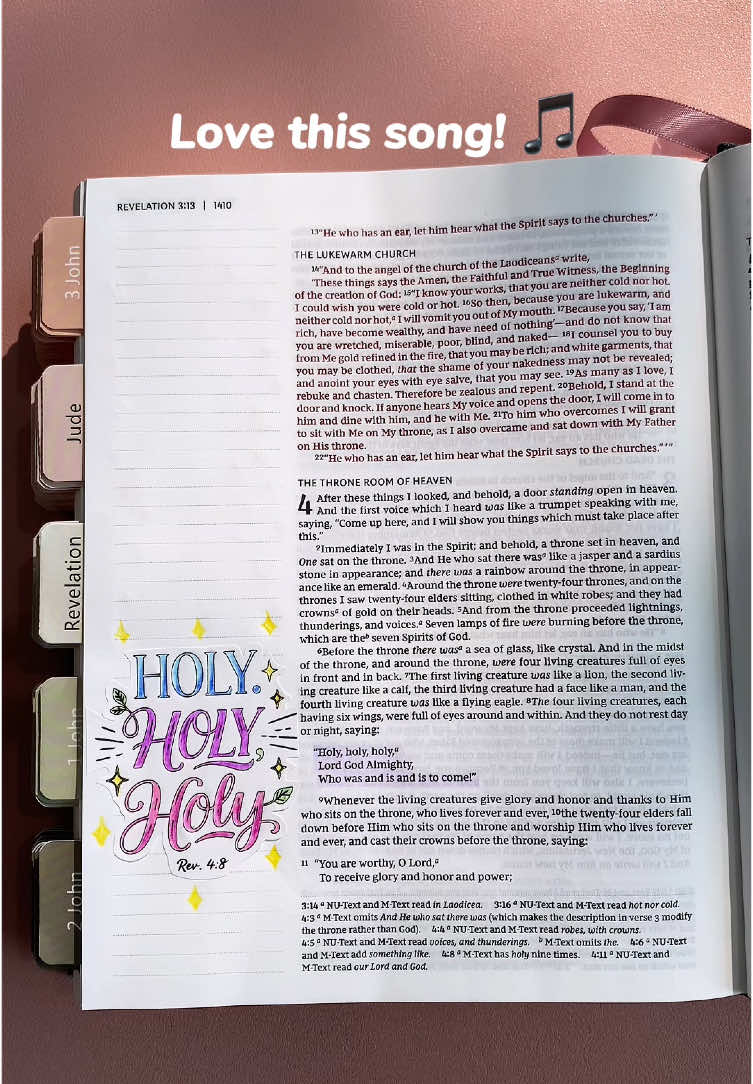 Love this song! 🎵
REVELATION 3:13 | 1410
3 John
Jude
Revelation
1 John
2 John
HOLY.
HOLY,
Holy
Rev. 4:8
13"He who has an ear, let him hear what the Spirit says to the churches." '
THE LUKEWARM CHURCH
14"And to the angel of the church of the Laodiceansa write,
'These things says the Amen, the Faithful and True Witness, the Beginning
of the creation of God: 15"I know your works, that you are neither cold nor hot.
I could wish you were cold or hot. 16So then, because you are lukewarm, and
neither cold nor hot,a I will vomit you out of My mouth. 17Because you say, 'I am
rich, have become wealthy, and have need of nothing'—and do not know that
you are wretched, miserable, poor, blind, and naked— 18I counsel you to buy
from Me gold refined in the fire, that you may be rich; and white garments, that
you may be clothed, that the shame of your nakedness may not be revealed;
and anoint your eyes with eye salve, that you may see. 19As many as I love, I
rebuke and chasten. Therefore be zealous and repent. 20Behold, I stand at the
door and knock. If anyone hears My voice and opens the door, I will come in to
him and dine with him, and he with Me. 21To him who overcomes I will grant
to sit with Me on My throne, as I also overcame and sat down with My Father
on His throne.
22"He who has an ear, let him hear what the Spirit says to the churches." ' "
THE THRONE ROOM OF HEAVEN
4 After these things I looked, and behold, a door standing open in heaven.
And the first voice which I heard was like a trumpet speaking with me,
saying, "Come up here, and I will show you things which must take place after
this."
2Immediately I was in the Spirit; and behold, a throne set in heaven, and
One sat on the throne. 3And He who sat there wasa like a jasper and a sardius
stone in appearance; and there was a rainbow around the throne, in appear-
ance like an emerald. 4Around the throne were twenty-four thrones, and on the
thrones I saw twenty-four elders sitting, clothed in white robes; and they had
crownsa of gold on their heads. 5And from the throne proceeded lightnings,
thunderings, and voices.a Seven lamps of fire were burning before the throne,
which are theb seven Spirits of God.
6Before the throne there wasa a sea of glass, like crystal. And in the midst
of the throne, and around the throne, were four living creatures full of eyes
in front and in back. 7The first living creature was like a lion, the second liv-
ing creature like a calf, the third living creature had a face like a man, and the
fourth living creature was like a flying eagle. 8The four living creatures, each
having six wings, were full of eyes around and within. And they do not rest day
or night, saying:
"Holy, holy, holy,a
Lord God Almighty,
Who was and is and is to come!"
9Whenever the living creatures give glory and honor and thanks to Him
who sits on the throne, who lives forever and ever, 10the twenty-four elders fall
down before Him who sits on the throne and worship Him who lives forever
and ever, and cast their crowns before the throne, saying:
11 "You are worthy, O Lord,a
To receive glory and honor and power;
3:14 a NU-Text and M-Text read in Laodicea. 3:16 a NU-Text and M-Text read hot nor cold.
4:3 a M-Text omits And He who sat there was (which makes the description in verse 3 modify
the throne rather than God). 4:4 a NU-Text and M-Text read robes, with crowns.
4:5 a NU-Text and M-Text read voices, and thunderings. b M-Text omits the. 4:6 a NU-Text
and M-Text add something like. 4:8 a M-Text has holy nine times. 4:11 a NU-Text and
M-Text read our Lord and God.